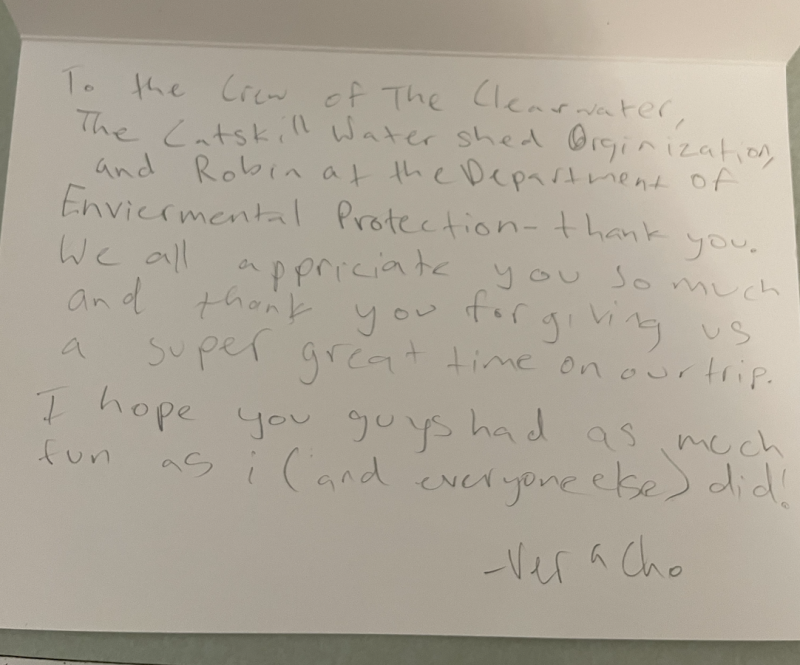 To the Crew of The Clearwater,
The Catskill Water shed Orginization,
and Robin at the Department of
Enviermental Protection- thank you.
We all appriciate you so much
and thank you for giving us
a super great time on our trip.
I hope you guys had as much
fun as i (and everyone else) did!
-Vera Cho